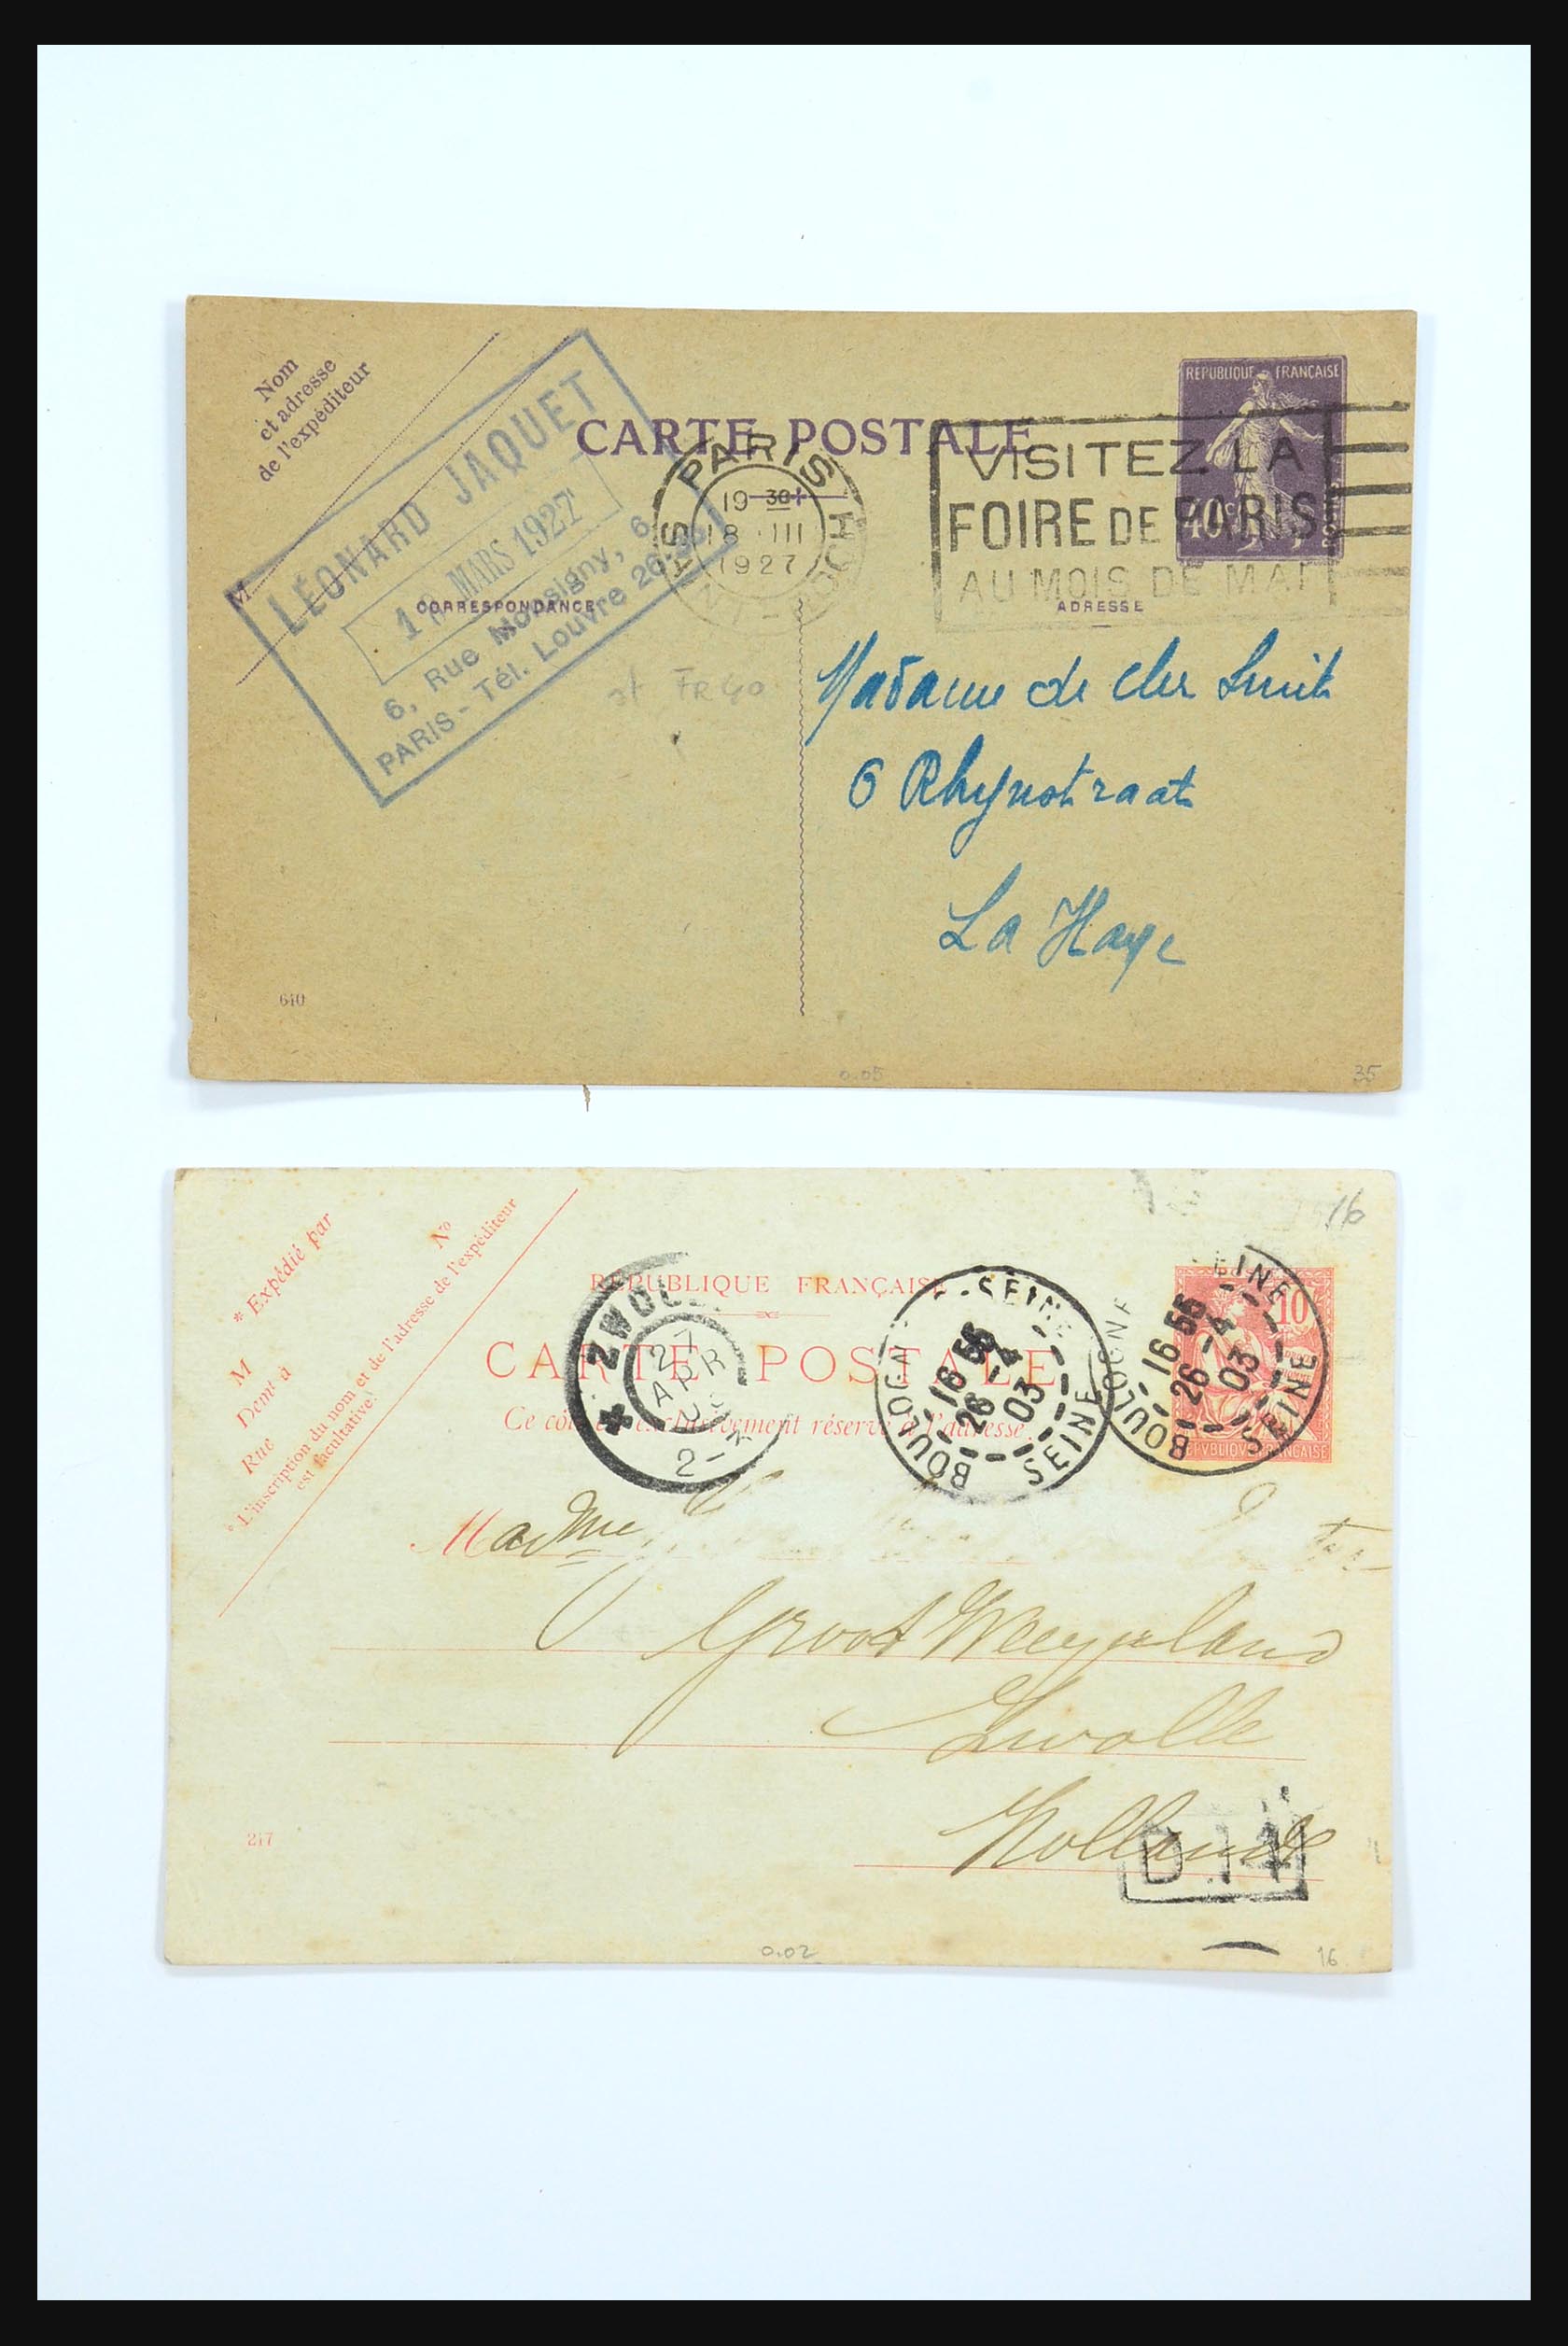 Nom
et adresse
de l'expéditeur
M
LÉONARD JAQUET
18 MARS 1927
6, Rue Monsigny, 6
PARIS - Tél. Louvre
CARTE POSTALE
PARIS
19 30
18 III
1927
VISITEZ LA
FOIRE DE PARIS
AU MOIS DE MAI
REPUBLIQUE FRANÇAISE
40c
CORRESPONDANCE
ADRESSE
Madame de
6 Rhynstraat
La Haye
640
0.05
35
16
* Expédié par
No
M
Demt à
Rue
* L'inscription du nom et de l'adresse de l'expéditeur
est facultative.
RÉPUBLIQUE FRANÇAISE
CARTE POSTALE
Ce côté exclusivement réservé à l'adresse
ZWOLLE
27
APR
BOULOGNE-S-SEINE
16 55
26 -4
03
SEINE
BOULOGNE SEINE
16 55
26 -4
03
SEINE
10
Madme
Groot
Zwolle
Hollande
D.14
247
0.02
16